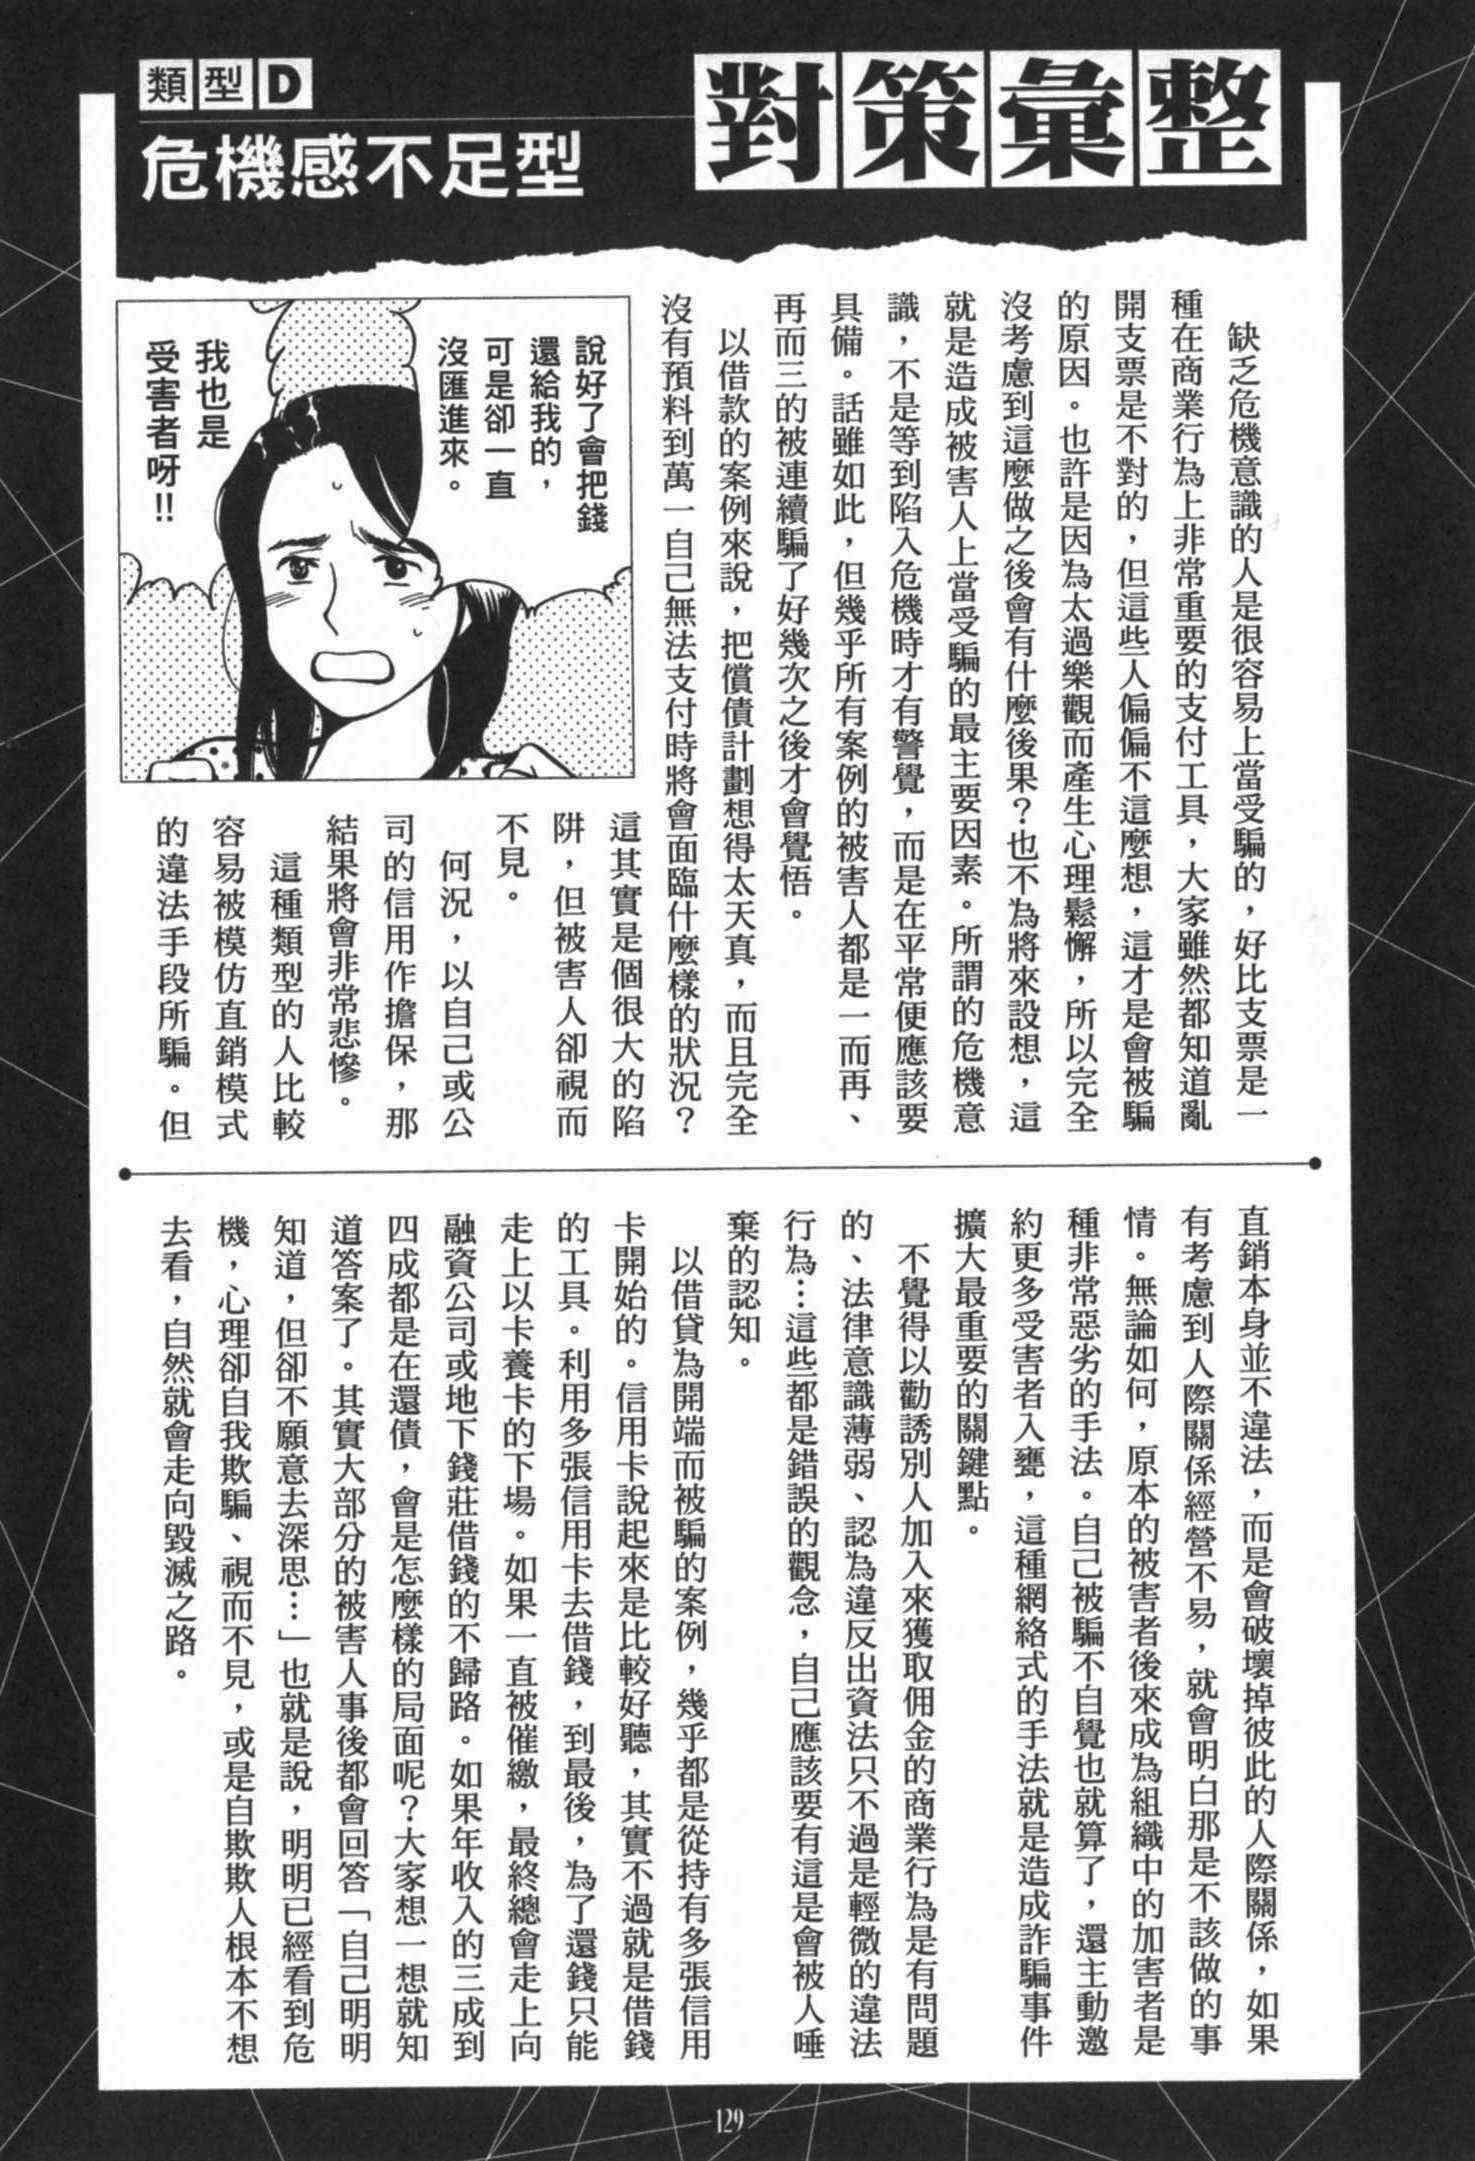 對策彙整
類型D
危機感不足型
缺乏危機意識的人是很容易上當受騙的，好比支票是一
種在商業行為上非常重要的支付工具，大家雖然都知道亂
開支票是不對的，但這些人偏偏不這麼想，這才是會被騙
的原因。也許是因為太過樂觀而產生心理鬆懈，所以完全
沒考慮到這麼做之後會有什麼後果？也不為將來設想，這
就是造成被害人上當受騙的最主要因素。所謂的危機意
識，不是等到陷入危機時才有警覺，而是在平常便應該要
具備。話雖如此，但幾乎所有案例的被害人都是一而再、
再而三的被連續騙了好幾次之後才會覺悟。
以借款的案例來說，把償債計劃想得太天真，而且完全
沒有預料到萬一自己無法支付時將會面臨什麼樣的狀況？
這其實是個很大的陷
阱，但被害人卻視而
不見。
何況，以自己或公
司的信用作擔保，那
結果將會非常悲慘。
這種類型的人比較
容易被模仿直銷模式
的違法手段所騙。但
說好了會把錢
還給我的，
可是卻一直
沒匯進來。
我也是
受害者呀!!
直銷本身並不違法，而是會破壞掉彼此的人際關係，如果
有考慮到人際關係經營不易，就會明白那是不該做的事
情。無論如何，原本的被害者後來成為組織中的加害者是
種非常惡劣的手法。自己被騙不自覺也就算了，還主動邀
約更多受害者入甕，這種網絡式的手法就是造成詐騙事件
擴大最重要的關鍵點。
不覺得以勸誘別人加入來獲取佣金的商業行為是有問題
的、法律意識薄弱、認為違反出資法只不過是輕微的違法
行為…這些都是錯誤的觀念，自己應該要有這是會被人唾
棄的認知。
以借貸為開端而被騙的案例，幾乎都是從持有多張信用
卡開始的。信用卡說起來是比較好聽，其實不過就是借錢
的工具。利用多張信用卡去借錢，到最後，為了還錢只能
走上以卡養卡的下場。如果一直被催繳，最終總會走上向
融資公司或地下錢莊借錢的不歸路。如果年收入的三成到
四成都是在還債，會是怎麼樣的局面呢？大家想一想就知
道答案了。其實大部分的被害人事後都會回答「自己明明
知道，但卻不願意去深思…」也就是說，明明已經看到危
機，心理卻自我欺騙、視而不見，或是自欺欺人根本不想
去看，自然就會走向毀滅之路。
129